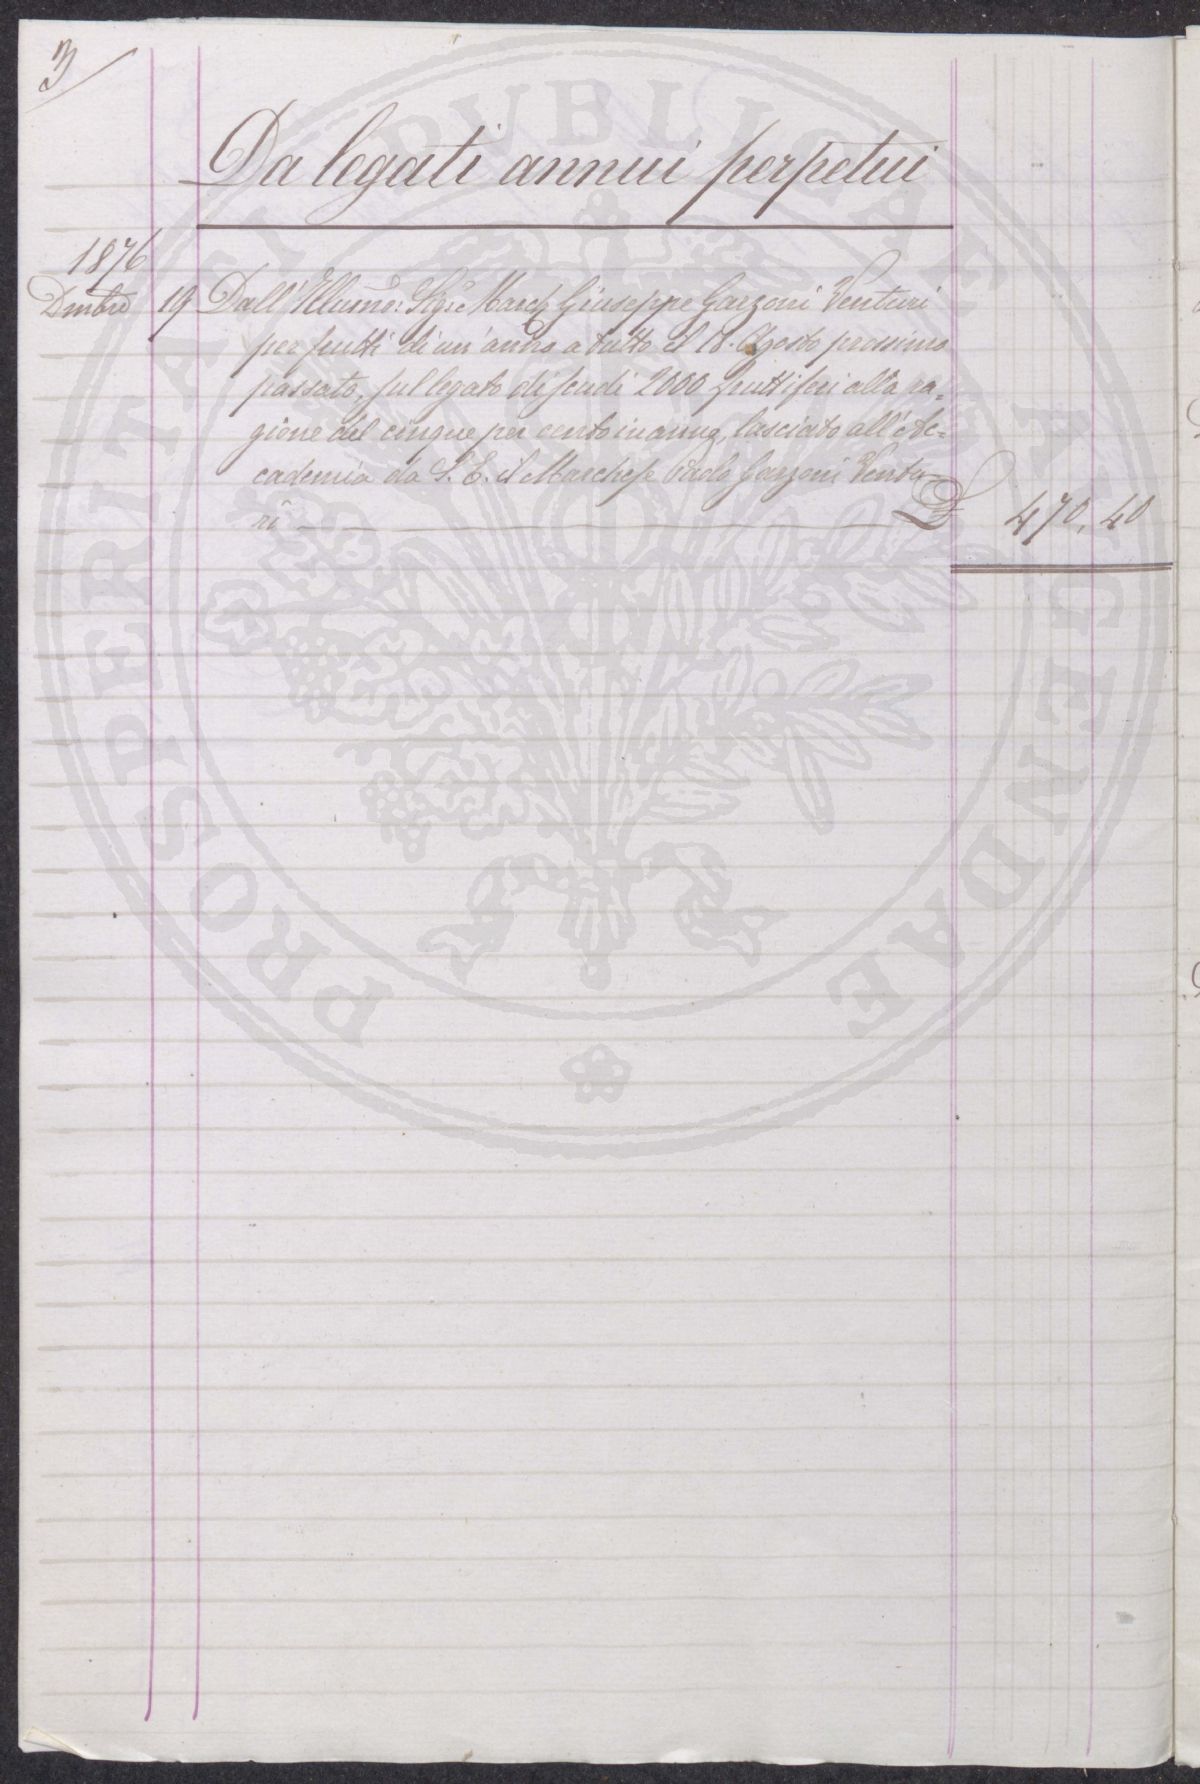 3
Da legati annui perpetui
1876
Dmbre 19 Dall'Illumo: Sigre March Giuseppe Garzoni Venturi
per frutti di un'anno a tutto il 18. Agosto prossimo
passato, sul legato di scudi 2000 fruttiferi alla ra=
gione del cinque per cento in anno, lasciato all'Ac=
cademia da S. E. il Marchese Paolo Garzoni Ventu-
ri £ 470.40
PROSPERITATI PUBLICAE AUGENDAE